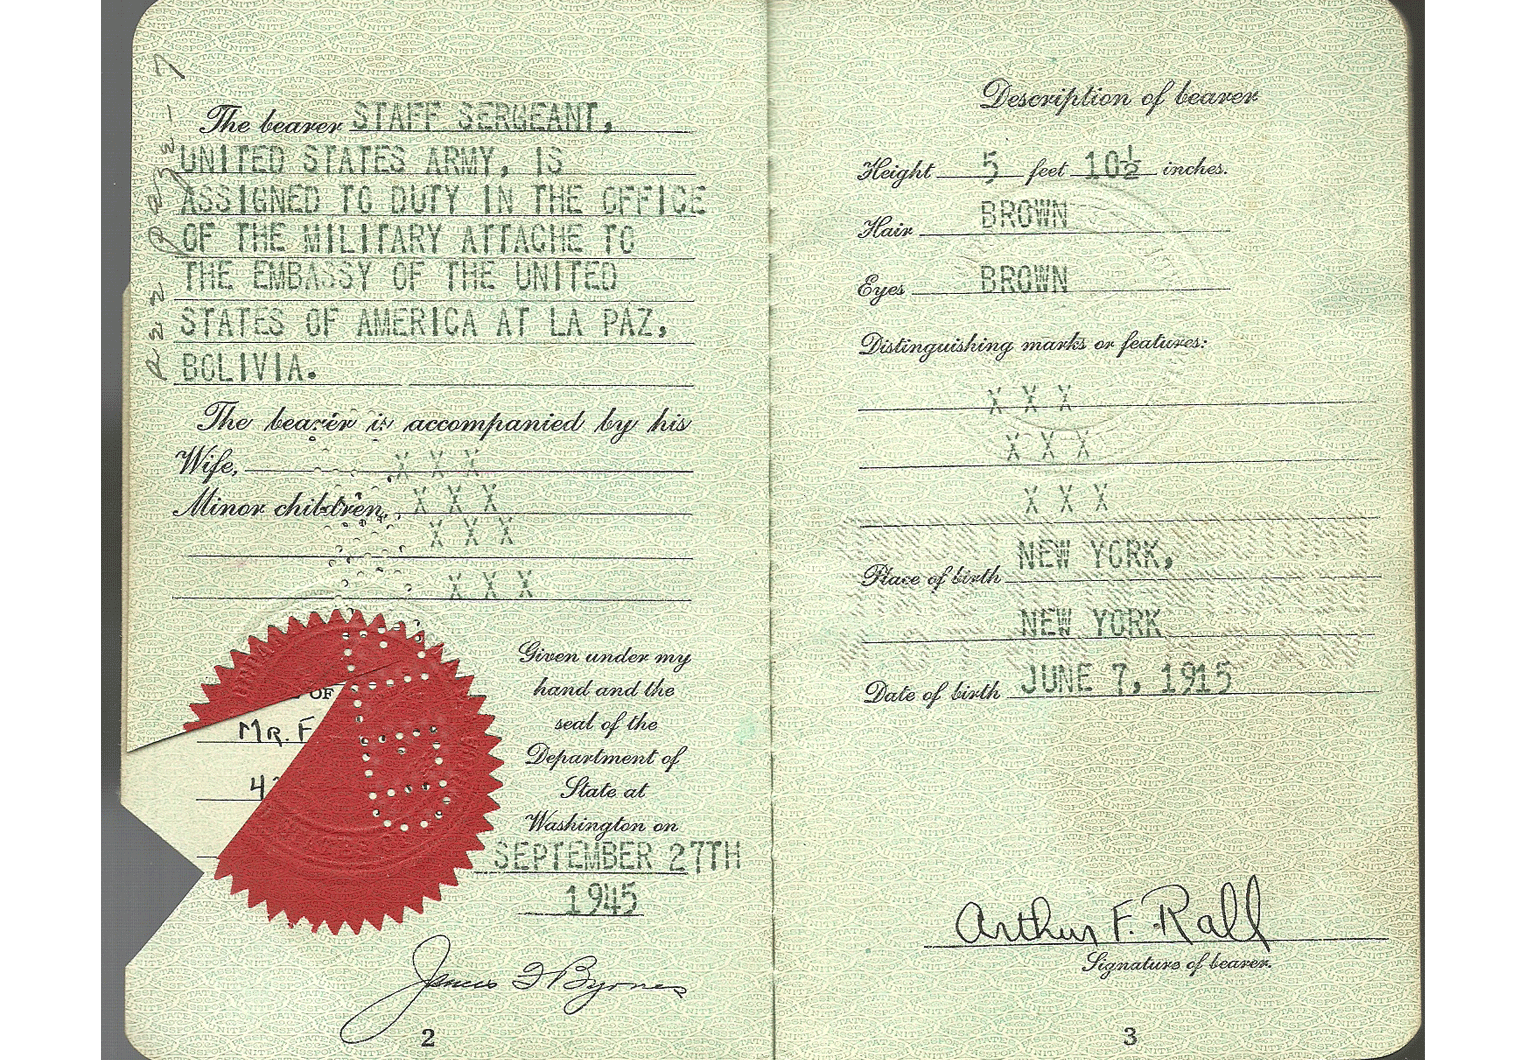 The bearer STAFF SERGEANT,
UNITED STATES ARMY, IS
ASSIGNED TO DUTY IN THE OFFICE
OF THE MILITARY ATTACHE TO
THE EMBASSY OF THE UNITED
STATES OF AMERICA AT LA PAZ,
BOLIVIA.
The bearer is accompanied by his
Wife, X X X
Minor children, X X X
X X X
X X X
OF
MR. F
4
Given under my
hand and the
seal of the
Department of
State at
Washington on
SEPTEMBER 27TH
1945
James F Byrnes
2
Description of bearer
Height 5 feet 10½ inches.
Hair BROWN
Eyes BROWN
Distinguishing marks or features:
X X X
X X X
X X X
Place of birth NEW YORK,
NEW YORK
Date of birth JUNE 7, 1915
Arthur F. Rall
Signature of bearer.
3